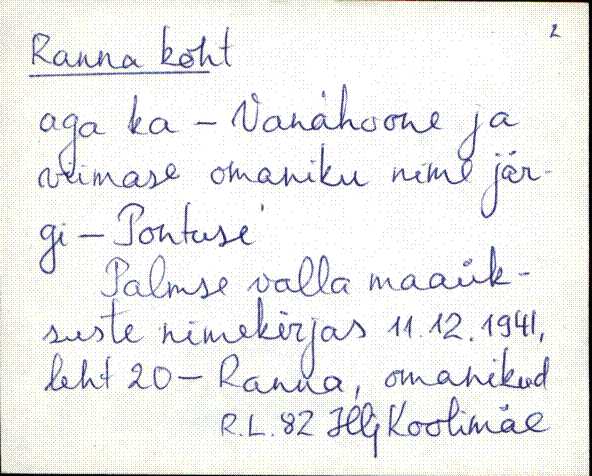 2
Ranna koht
aga ka – Vanahoone ja
viimase omaniku nime jär-
gi – Pontuse
Palmse valla maaük-
suste nimekirjas 11.12.1941,
leht 20 – Ranna, omanikud
R.L. 82 Koolimäe